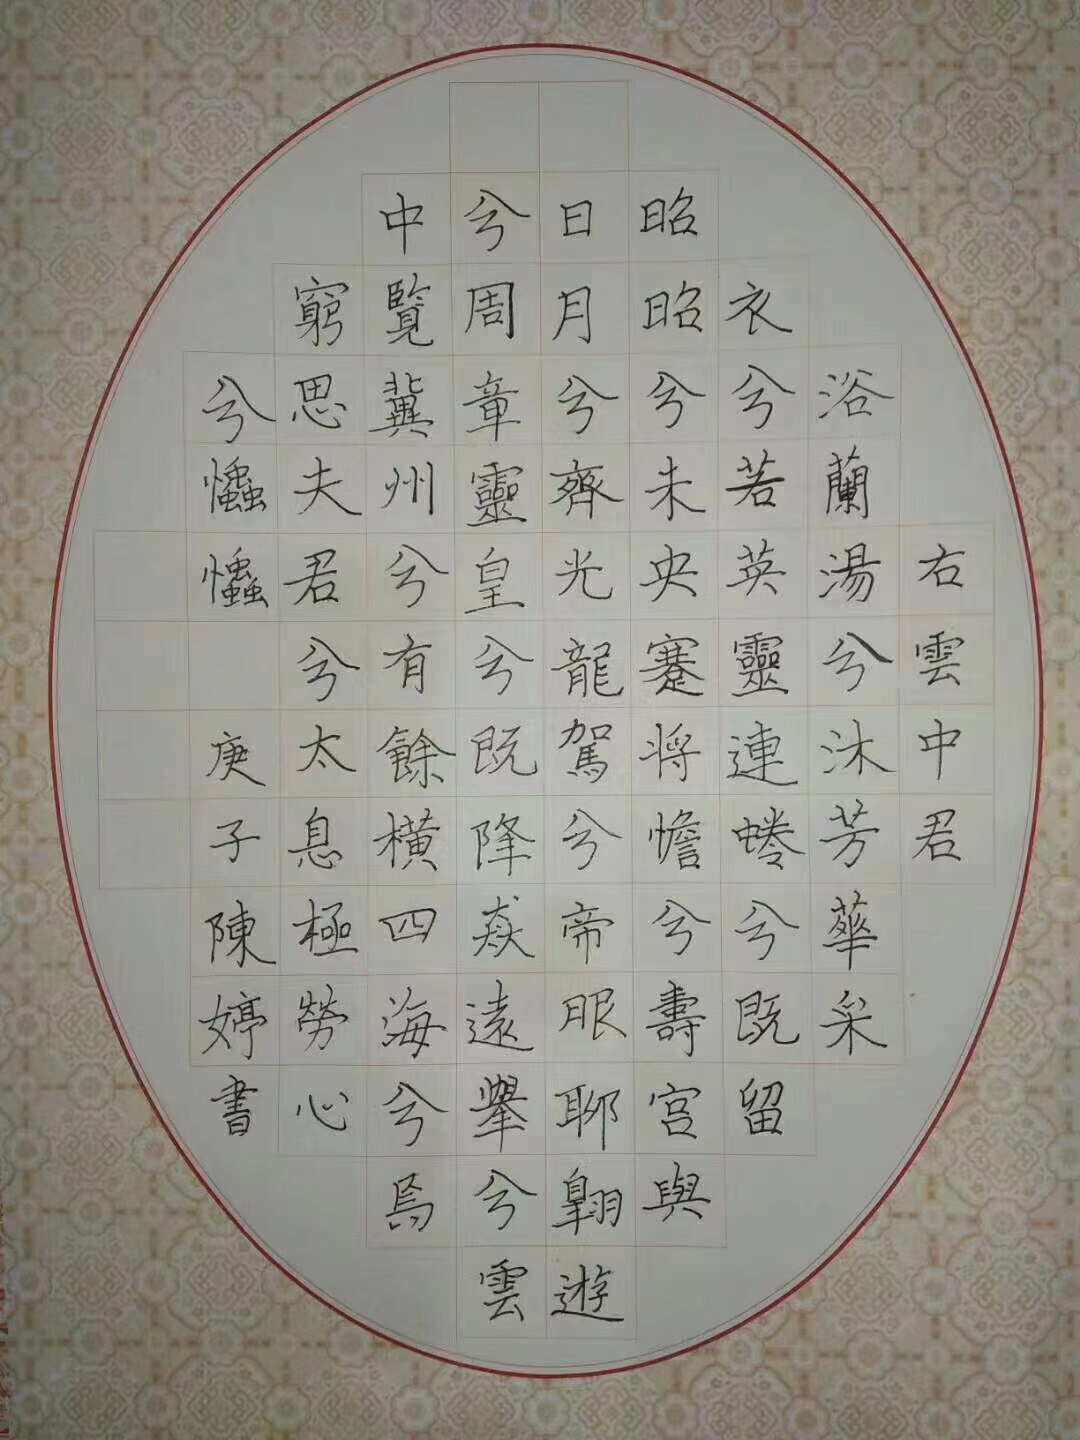 右雲中君
浴蘭湯兮沐芳華采
衣兮若英靈連蜷兮既留
昭昭兮未央蹇將憺兮壽宮與
日月兮齊光龍駕兮帝服聊翺遊
兮周章靈皇兮既降猋遠舉兮雲
中覽冀州兮有餘橫四海兮焉
窮思夫君兮太息極勞心
兮𢥞𢥞
庚子陳婷書